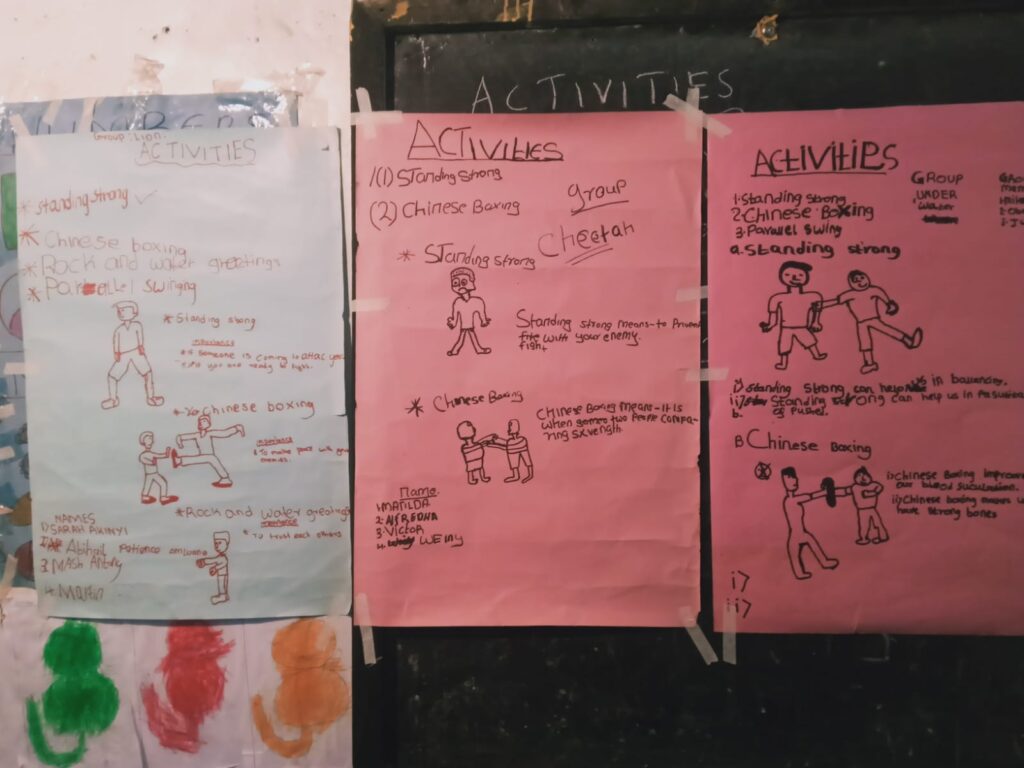 ACTIVITIES
NUMBERS
Group: Lion.
ACTIVITIES
* standing strong ✓
* Chinese boxing
* Rock and water greetings
* Parallel swinging
* Standing stong
importance
* If someone is coming to attac you
* To Chinese boxing
importance
* To make peace with
enemies.
* Rock and water greetings
importance
* To trust each others
NAMES
1) SARAH AKINYI
2. Abihail Patience
3. MASh Antony
4. Martin
ACTIVITIES
(1) Standing Strong
(2) Chinese Boxing
Group
Cheetah
* Standing strong
Standing strong means-to Prevent
fite with your enemy.
fight
* Chinese Boxing
Chinese Boxing means-it is
when two People compa-
ring strength
Name
1. MATILDA
2.
3. Victor
4.
ACTIVITIES
1. Standing strong
2. Chinese Boxing
3. Parallel swing
GROUP
UNDER
Water
a. Standing strong
i) Standing strong can help us in balancing.
ii) Standing strong can help us in
b.
B Chinese Boxing
i) Chinese Boxing
our blood
ii) Chinese boxing makes
have strong bones
i)
ii)